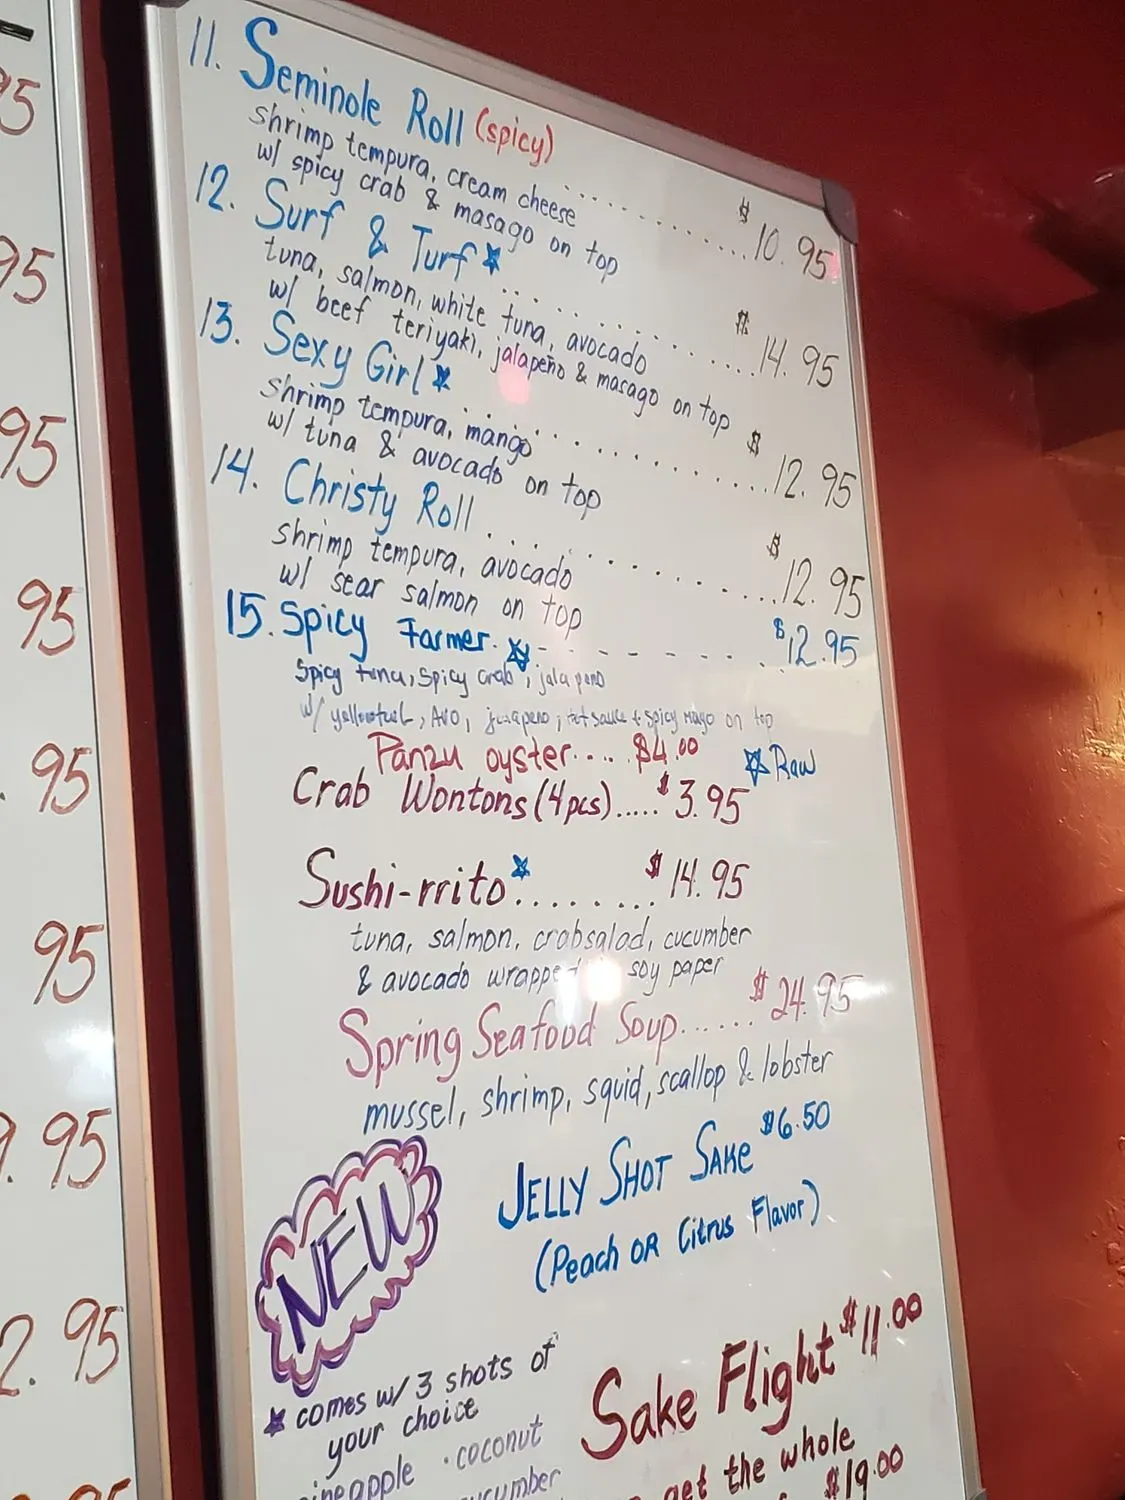 11. Seminole Roll (spicy) .......... $10.95
shrimp tempura, cream cheese
w/ spicy crab & masago on top
12. Surf & Turf ☆ .......... $14.95
tuna, salmon, white tuna, avocado
w/ beef teriyaki, jalapeño & masago on top
13. Sexy Girl ☆ .......... $12.95
shrimp tempura, mango
w/ tuna & avocado on top
14. Christy Roll .......... $12.95
shrimp tempura, avocado
w/ sear salmon on top
15. Spicy Farmer. ☆ - - - - - - $12.95
Spicy tuna, Spicy crab, jalapeno
w/ yellowtail, AVO, jalapeno, hot sauce + Spicy mayo on top
Panzu oyster.... $4.00
☆ Raw
Crab Wontons (4pcs)..... $3.95
Sushi-rrito ☆ ......... $14.95
tuna, salmon, crabsalad, cucumber
& avocado wrapped soy paper
Spring Seafood Soup...... $24.95
mussel, shrimp, squid, scallop & lobster
JELLY SHOT SAKE $6.50
(Peach OR Citrus Flavor)
NEW
Sake Flight $11.00
☆ comes w/ 3 shots of
your choice
ineapple · coconut
cumber
get the whole
$19.00
95
95
95
95
. 95
95
9.95
2.95